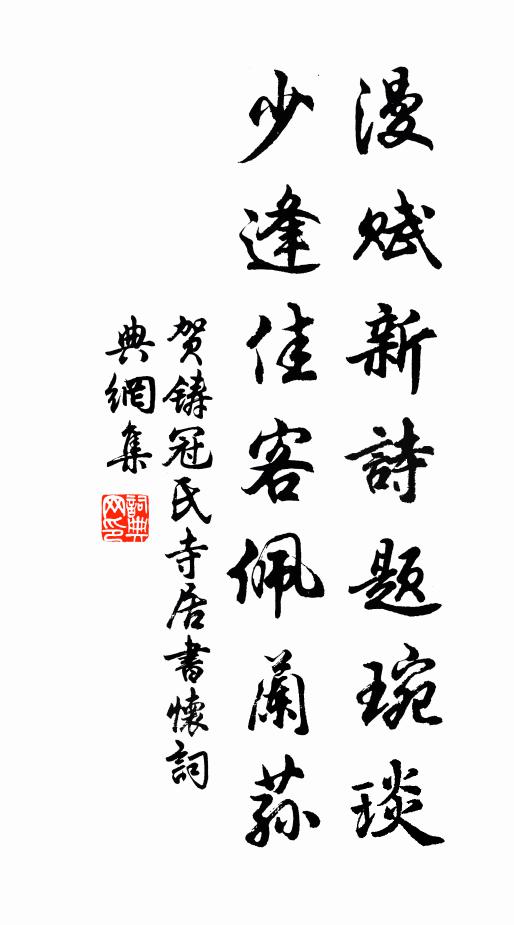 漫赋新詩题琬琰
少逢佳客佩蘭荪
贺鑄冠氏寺居書懷詞
典網集
詞典网印